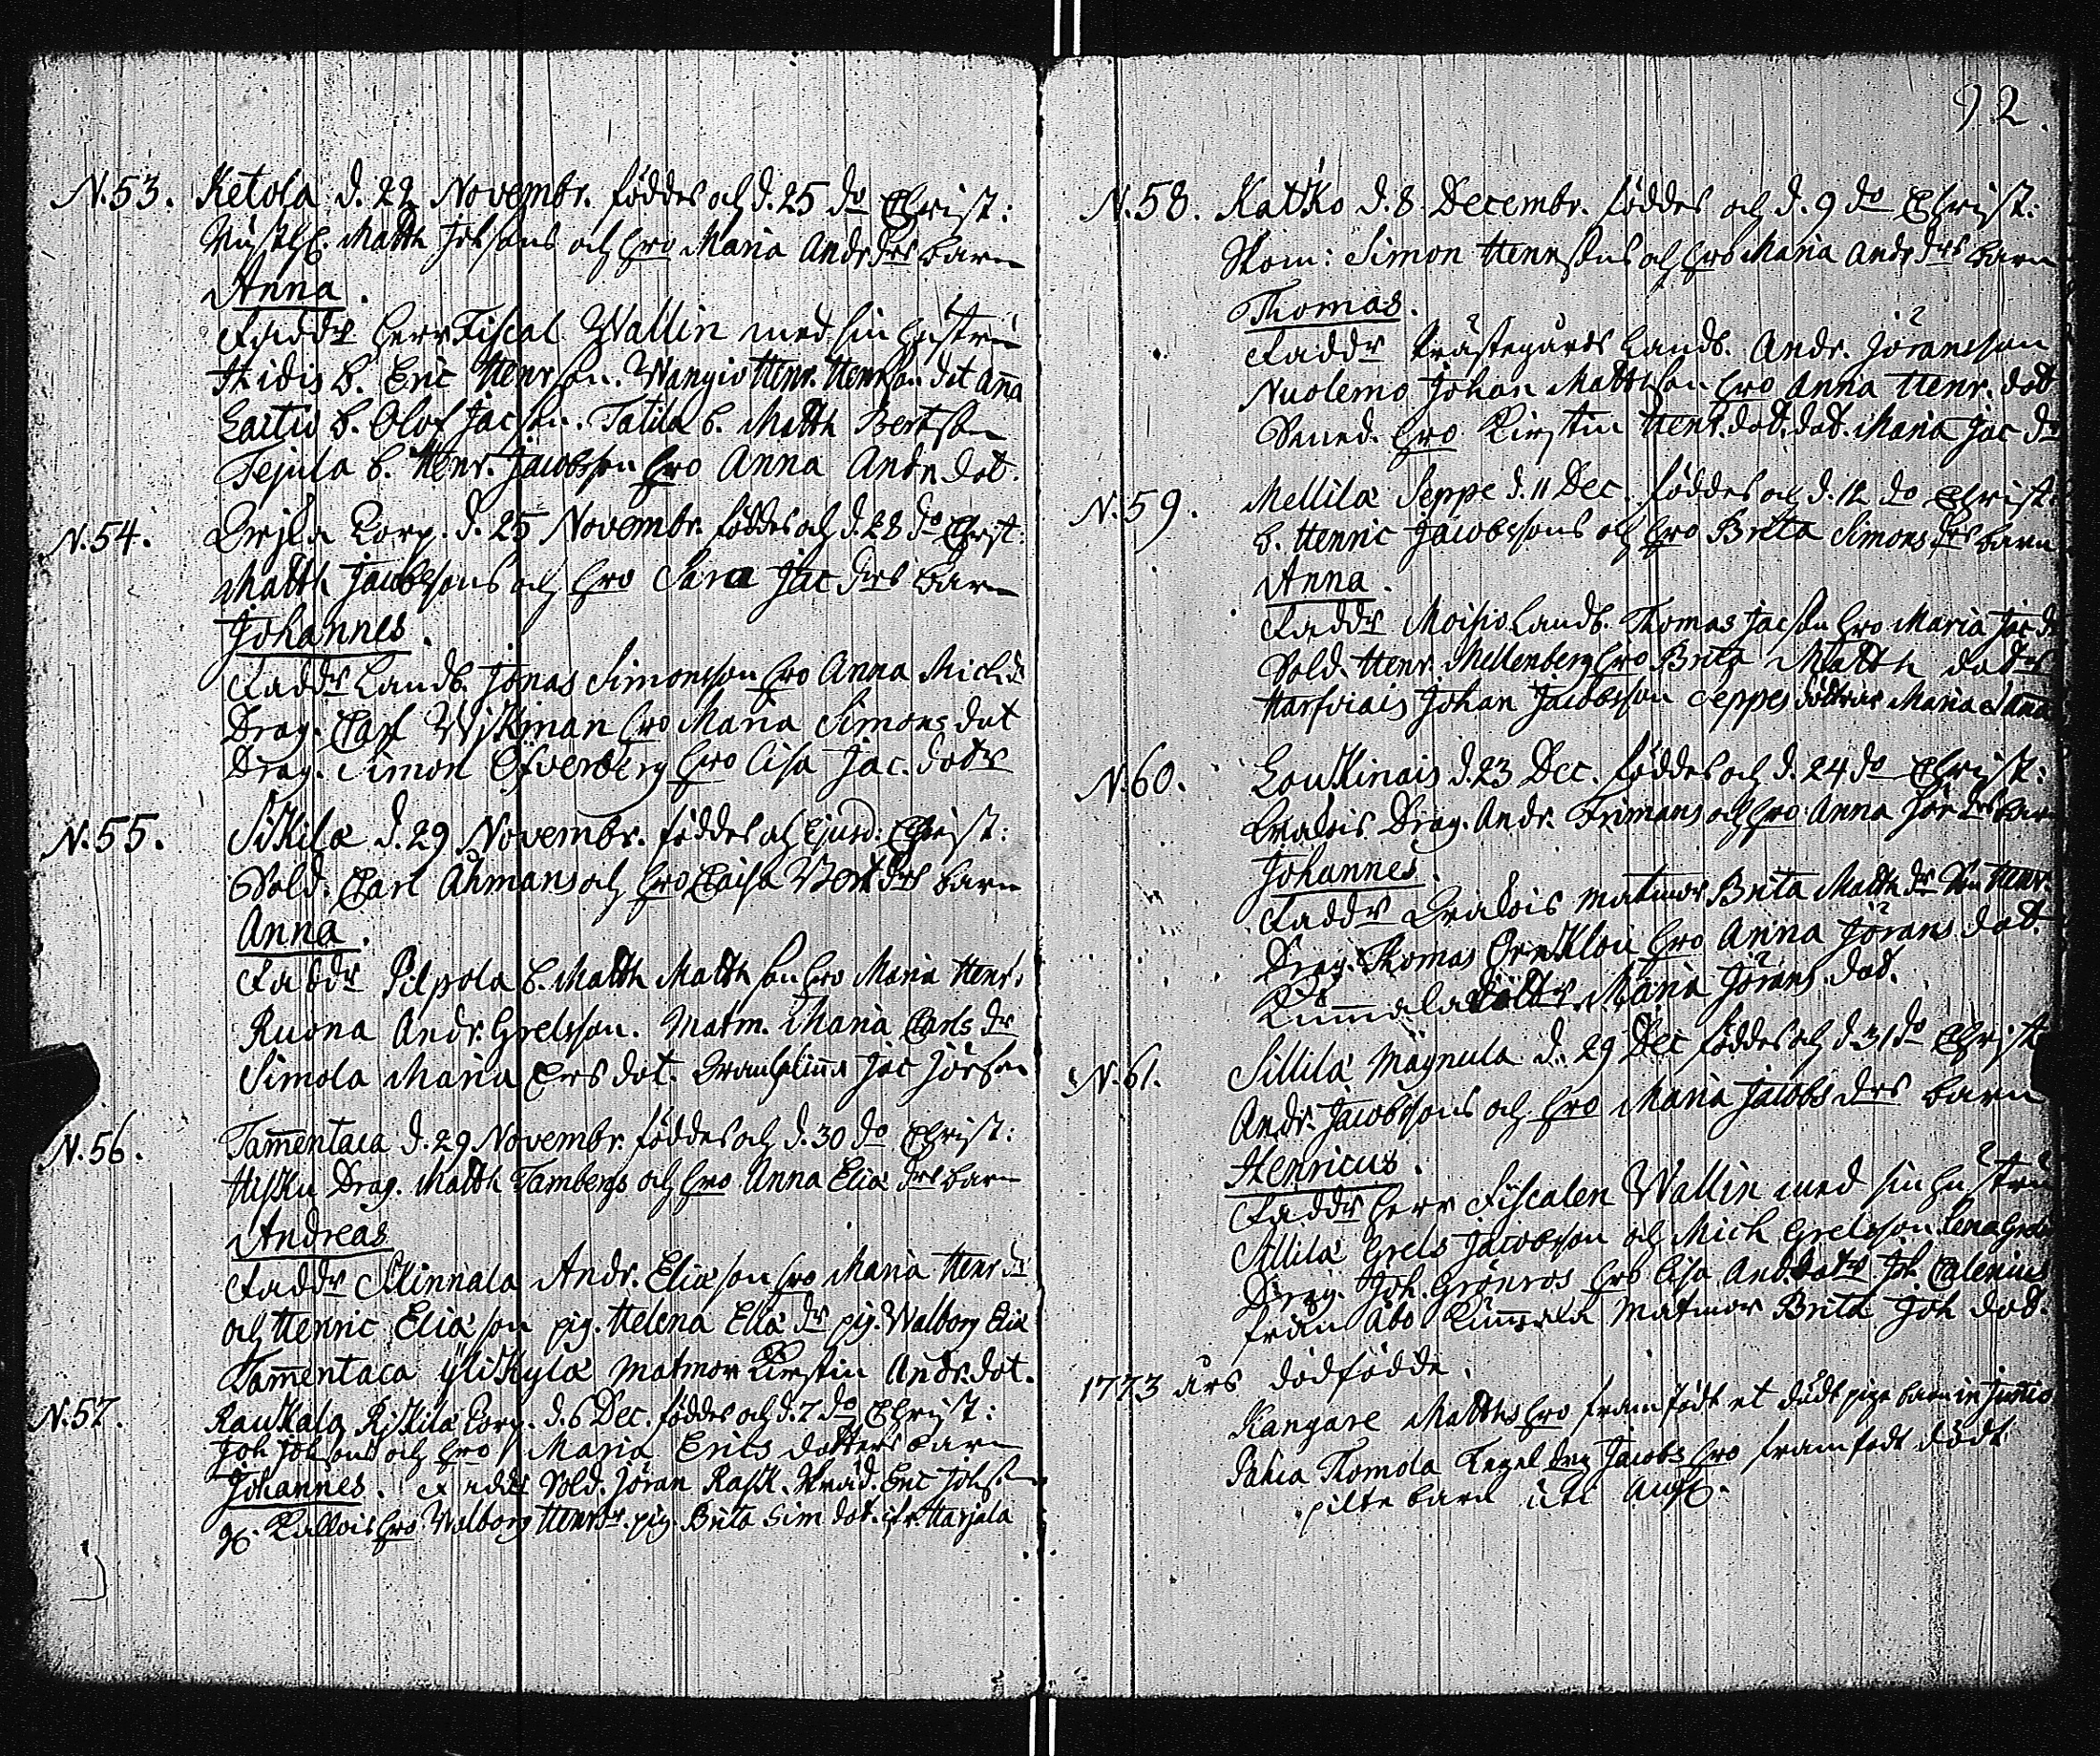 92.
N.53. Ketola d. 22 Novembr. föddes och d. 25 do Christ:
Rusth. Matth Johsons och hro Maria Andr drs barn
Anna.
Faddr herr Fiscal Wallin med sin hustru
Hidis b. Eric Henrson. Wangio Henr. Henrson dot Anna
Laitio b. Olof Jacson. Tatila b. Matth Bertson
Tejula b. Henr. Jacobsson hro Anna Andr dot.
N.54. Corp. d. 25 Novembr. föddes och d. 28 do Christ:
Matth Jacobsons och hro Sara Jac drs barn
Johannes.
Faddr Landb. Jonas Simonsson hro Anna Mich dr
Drag. Carl Wikman hro Maria Simons dot
Drag. Simon Öfverberg hro Lisa Jac. dotr
N.55. Sikilä d. 29 Novembr. föddes och ejusd: Christ:
Sold. Carl Åhmans och hro Caisa Bert drs barn
Anna.
Faddr Pilpola b. Matth Matthson hro Maria Henr.
Ruona Andr. Grelsson. Matm. Maria Carls dr
Simola Maria Ers dot. Jac Jörson
N.56. Tam̄entaca d. 29 Novembr. föddes och d. 30 do Christ:
Hisku Drag. Matth Tambergs och hro Anna Eliæ drs barn
Andreas
Faddr Skinnala Andr. Eliæson hro Maria Henr dr
och Henric Eliæson pig. Helena Eliæ dr pig. Walborg Eliæ
Tam̄entaca Ylikylä matmor Kirstin Andr. dot.
N.57. Raukala Riskila Corp. d. 6 Dec. föddes och d. 7 do Christ:
Joh Johsons och hro Maria Erics dotters barn
Johannes. Faddr Sold. Jöran Rask. Skräd. Eric Johson
Kallois hro Walborg Henrdr. pig. Brita Sim dot. ifr. Harjula
N.58. Katko d. 8 Decembr. föddes och d. 9 do Christ:
Skom: Simon Henrsons och hro Maria Andr drs barn
Thomas.
Faddr Prästegårds Landb. Andr. Jöransson
Nuolemo Johan Matthson hro Anna Henr. dot
Smed. hro Kirstin Henr. dot. dot. Maria Jac dr
N.59. Mellilä Seppe d. 11 Dec. föddes och d. 12 do Christ:
b. Henric Jacobssons och hro Brita Simons drs barn
Anna.
Faddr Moisio Landb. Thomas Jacson hro Maria Jac dr
Sold. Henr. Mellenberg hro Brita Matth dotr
Harfviais Johan Jacobsson Seppes döttrar Maria & Anna
N.60. Louskinais d. 23 Dec. föddes och d. 24 do Christ:
Drag. Andr. Frimans och hro Anna Jör drs barn
Johannes.
Faddr matmor Brita Matth dr Henr.
Drag. Thomas Örnklou hro Anna Jörans dot.
Kum̄ala Maria Jörans dot.
N.61. Sillilä Mägnula d. 29 Dec föddes och d. 31 do Christ
Andr. Jacobssons och hro Maria Jacobs drs barn
Henricus.
Faddr herr Fiscalen Wallin med sin hustru
Sillilä Grels Jacobsson och Mich Grelsson Lena Grels
Drag. Joh. Grönroos hro Lisa And. dotr Joh Calenius
från Åbo Kum̄ala matmor Brita Joh dot.
1773 års dödfödde.
Kangare Matths hro framfödt et dödt pige barn in Junio
Thomola Jacobs hro framfödt dödt
pilte barn uti Aug.